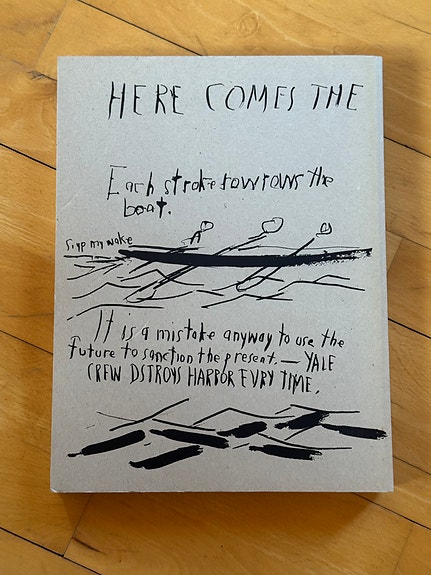 HERE COMES THE
Each stroke rowrows the
boat.
Sing my wake
It is a mistake anyway to use the
future to sanction the present. — YALE
CREW DSTROYS HARBOR EVRY TIME.